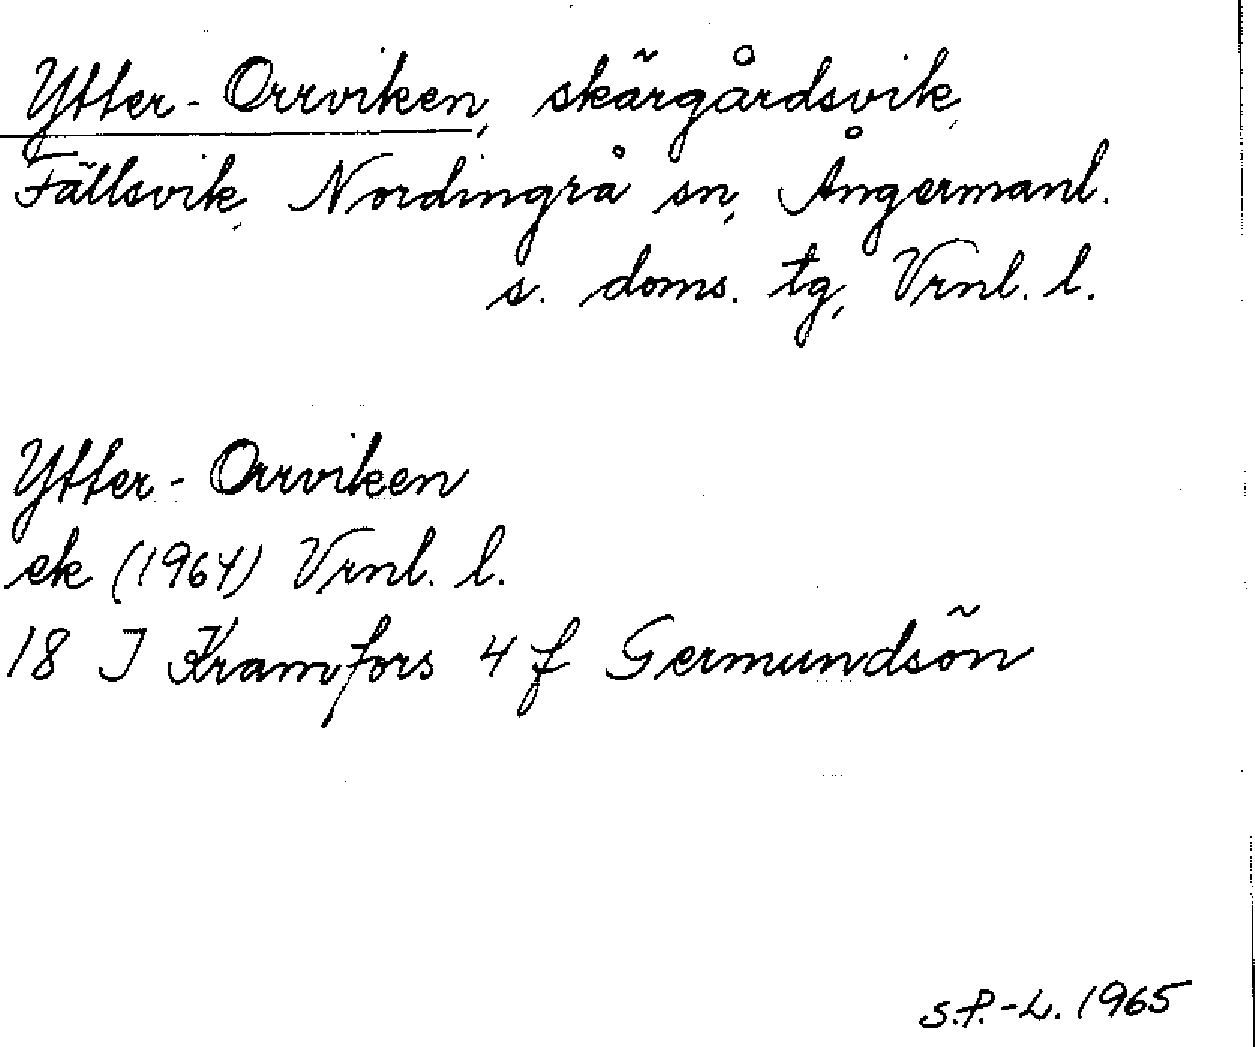 Ytter-Orrviken, skärgårdsvik,
Fällsvik, Nordingrå sn, Ångermanl.
s. doms. tg, Vrnl. l.
Ytter-Orrviken
ek (1964) Vrnl. l.
18 J Kramfors 4 f Germundsön
S.P.-L. 1965